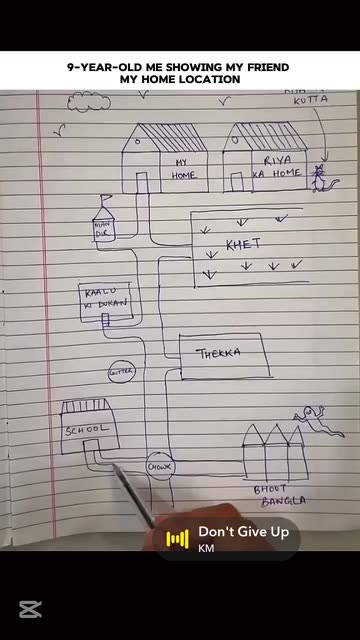 9-YEAR-OLD ME SHOWING MY FRIEND
MY HOME LOCATION
KUTTA
MY
HOME
RIYA
KA HOME
MAN
DIR
KHET
KAALU
KI DUKAN
THEKKA
GUTTER
SCHOOL
CHOWK
BHOOT
BANGLA
Don't Give Up
KM